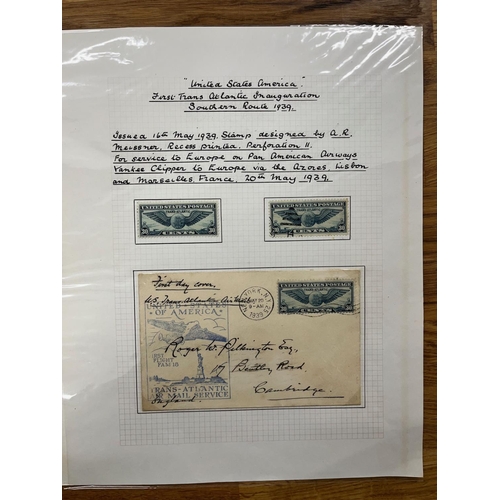 "United States America".
First Trans Atlantic Inauguration
Southern Route 1939.
Issued 16th May 1939. Stamp designed by A.R.
Meissner. Recess printed. Perforation 11.
For service to Europe on Pan American Airways
Yankee Clipper to Europe via the Azores, Lisbon
and Marseilles France. 20th May 1939.
UNITED STATES POSTAGE
30 30
CENTS
UNITED STATES POSTAGE
30
CENTS
First day cover.
U.S. Trans-Atlantic Air Mail
UNITED STATES
OF AMERICA
FIRST
FLIGHT
FAM 18
TRANS-ATLANTIC
AIR MAIL SERVICE
NEW YORK, N.Y.
9-AM
1939
UNITED STATES POSTAGE
CENTS
Roger W. Pilkington Esq,
19 Bentley Road,
Cambridge.
England.